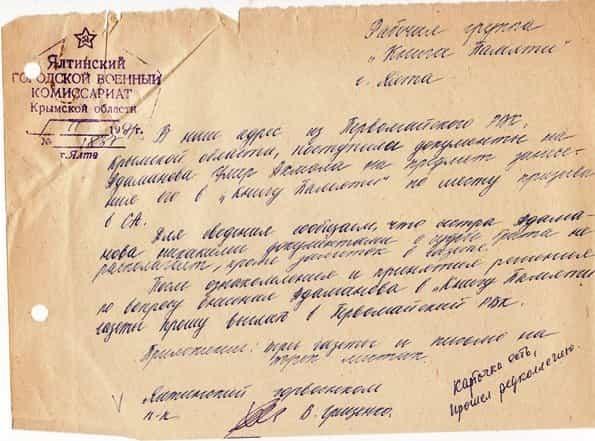 Ялтинский
ГОРОДСКОЙ ВОЕННЫЙ
КОМИССАРИАТ
Крымской области
11 1991г.
№ 1851
г. Ялта
Рабочая группа
"Книги Памяти"
г. Ялта
В наш адрес из Первомайского РВК,
Крымской области, поступили документы на
Адаманова на предмет занесе-
ния его в "Книгу Памяти" по месту призыва
в СА.
Для сведения сообщаем, что сестра Адама-
нова никакими документами о судьбе брата не
располагает, кроме заметок в газете.
После ознакомления и принятия решения
по вопросу внесения Адаманова в "Книгу Памяти"
газеты прошу выслать в Первомайский РВК.
Приложение: газеты и письмо на
трех листах.
Ялтинский горвоенком
п-к В. Гриценко.
Карточка есть,
Прошел редколлегию.